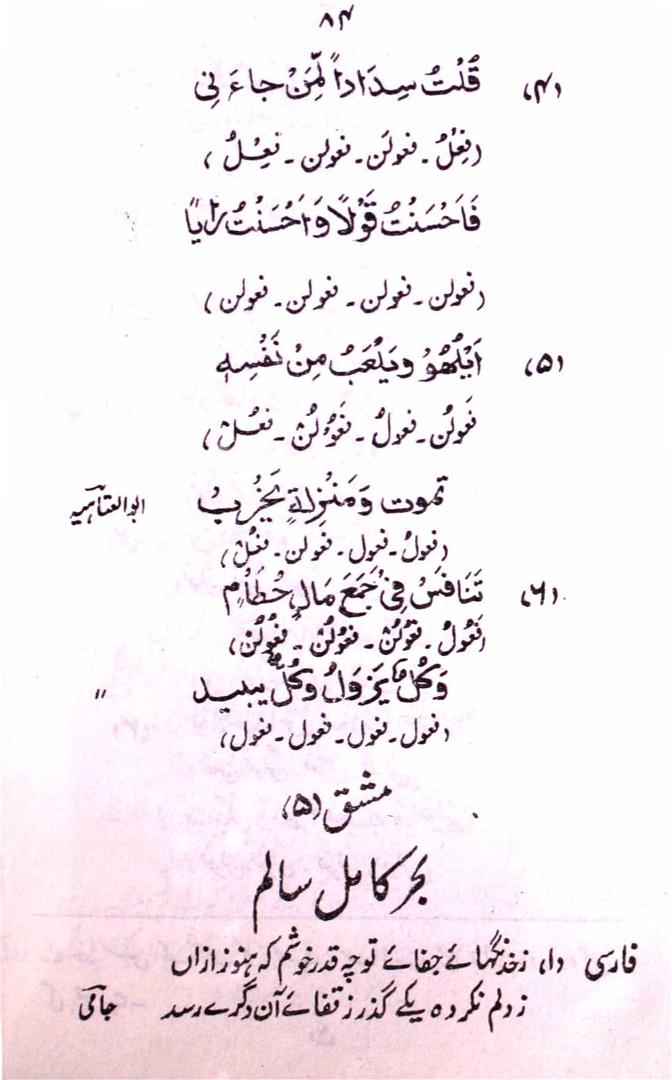 ۸۴
(۴) قُلْتُ سِدَاداً لِّمَنْ جاءَ نِی
(فعْلُ ۔ فعولن ۔ فعولن ۔ فعِلُ)
فَاَحْسَنْتُ قَوْلًا وَاَحْسَنْتُ رَایًا
(فعولن ۔ فعولن ۔ فعولن ۔ فعولن)
(۵) اَیَلْهُوْ وَیَلْعَبُ مِنْ نَفْسِهٖ
فَعولُن ۔ فعولُ ۔ فَعَوْلُنْ ۔ فعُلْ)
تموت وَمَنْزِلةٍ یَخْرُبُ ابوالعتاہیہ
(فعولُ ۔ فعول ۔ فعولن ۔ فعُلْ)
(۶) تَنَافَسُ فِیْ جَمْعَ مَالٍ حُطَاْمٍ
(فَعُوْلُ ۔ فَعُوْلُنْ ۔ فَعُوْلُنْ ۔ فَعُوْلُنْ)
وَکُلٌّ یَزُولُ وَکُلٌّ یبید 〃
(فعول ۔ فعول ۔ فعول ۔ فعول)
مشق (۵)
بحر کامل سالم
فارسی (۱) زخدنگہائے جفائے تو چہ قدر خوشم کہ ہنوز ازاں
زدلم نکردہ یکے گذر ز قفائے آن دگرے رسد جامی